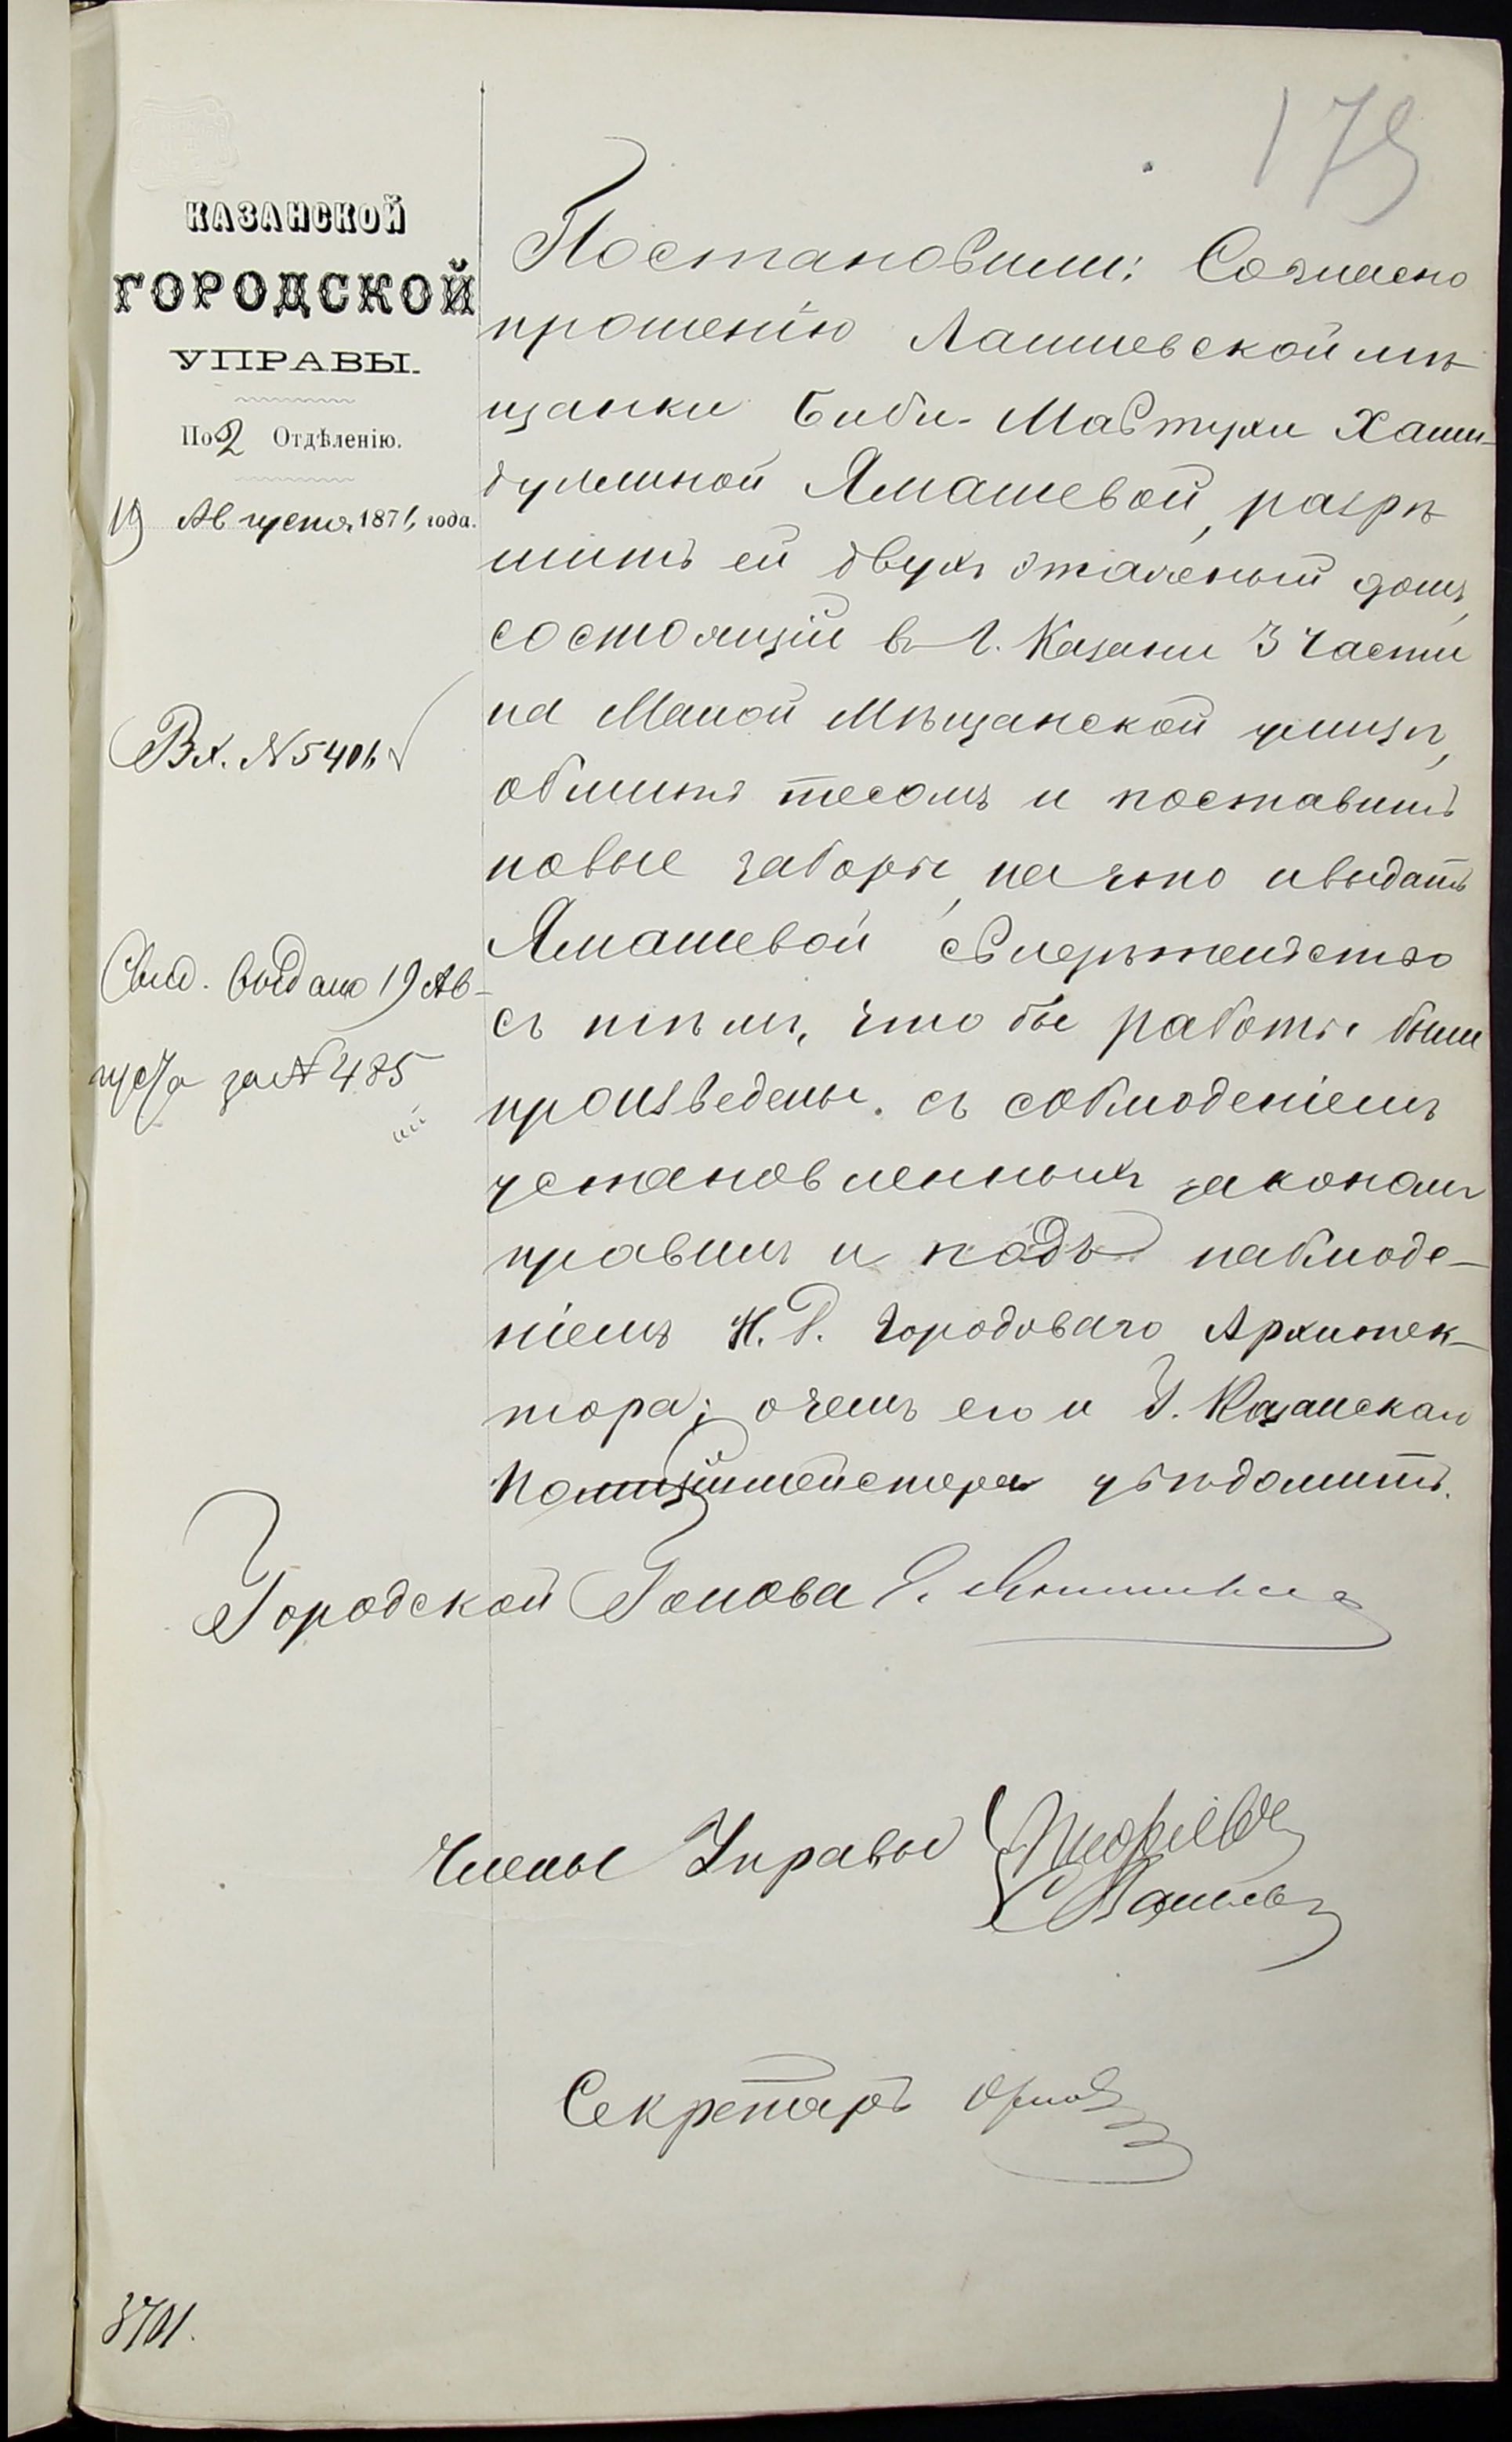 179
КАЗАНСКОЙ
ГОРОДСКОЙ
УПРАВЫ.
По 2 Отдѣленію.
19 Августа 1871 года.
Вх. № 5406
Свид. выдано 19 Ав-
густа за № 485
Постановили: Согласно
прошенію Лаишевской мѣ
щанки Биби-Мавтухи Хами-
дуллиной Ямашевой, разрѣ
шить ей двухъ этажный домъ,
состоящій въ г. Казани 3 части
на Малой Мѣщанской улицѣ,
обшить тесомъ и поставить
новые заборы, на что и выдать
Ямашевой свидѣтельство
съ тѣмъ, что бы работы были
произведены съ соблюденіемъ
установленныхъ закономъ
правилъ и подъ наблюде-
ніемъ И. Д. Городоваго Архитек-
тора; о чемъ его и Г. Казанскаго
Полиціймейстера увѣдомить.
Городской Голова Е.
Члены Управы
Секретарь Орлов
3701.